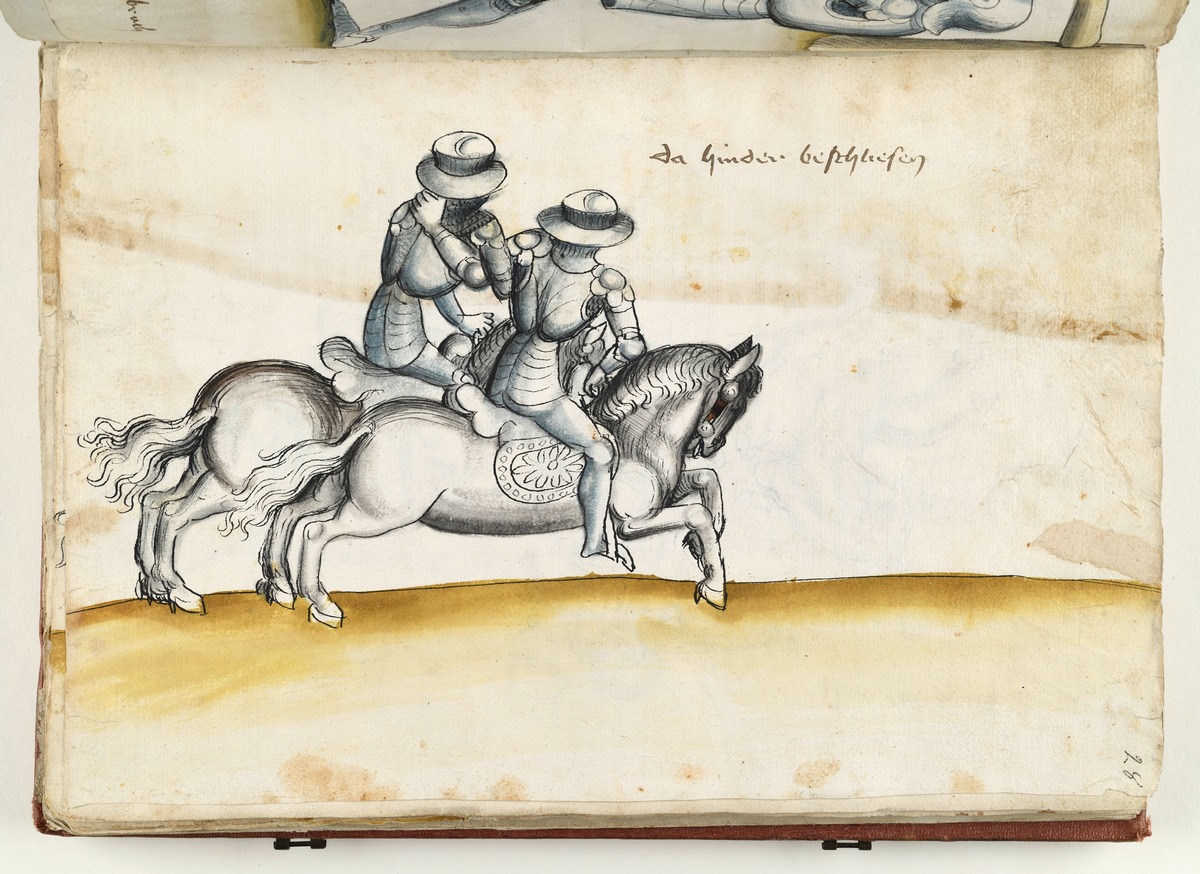 da hinder beschliesen
28